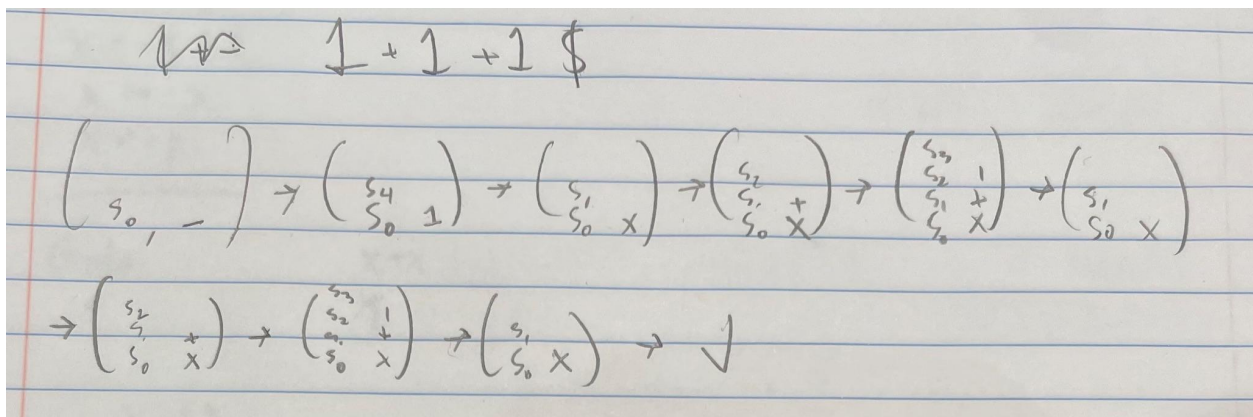 1 + 1 + 1 $
( S₀, – ) → ( S₄ S₀ 1 ) → ( S₁ S₀ X ) → ( S₂ S₁ S₀ + X ) → ( S₃ S₂ S₁ S₀ 1 + X ) → ( S₁ S₀ X )
→ ( S₂ S₁ S₀ + X ) → ( S₃ S₂ S₁ S₀ 1 + X ) → ( S₁ S₀ X ) → √